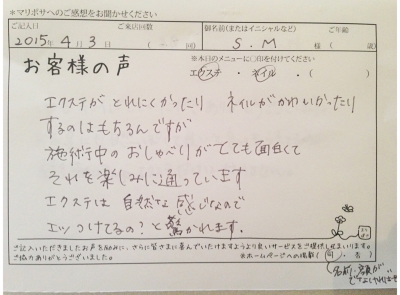 ＊マリポサへのご感想をお聞かせください
ご記入日 ご来店回数 御名前(またはイニシャルなど) ご年齢
2015年 4月 3日 ( 回) S.M 様 ( 歳)
お客様の声
＊本日のメニューに○印を付けてください
エクステ ・ ネイル
エクステが とれにくかったり ネイルがかわいかったり
するのはもちろんですが
施術中の おしゃべりがとても面白くて
それを楽しみに通っています
エクステは 自然な 感じなので
エッつけてるの？と驚かれます。
ご記入いただきましたお声を励みに、さらに皆さまに喜んでいただけますようより良いサービスをご提供してまいります。
ご協力ありがとうございました。 ＊ホームページへの掲載( 可 ・ 否 )
名前、容貌が